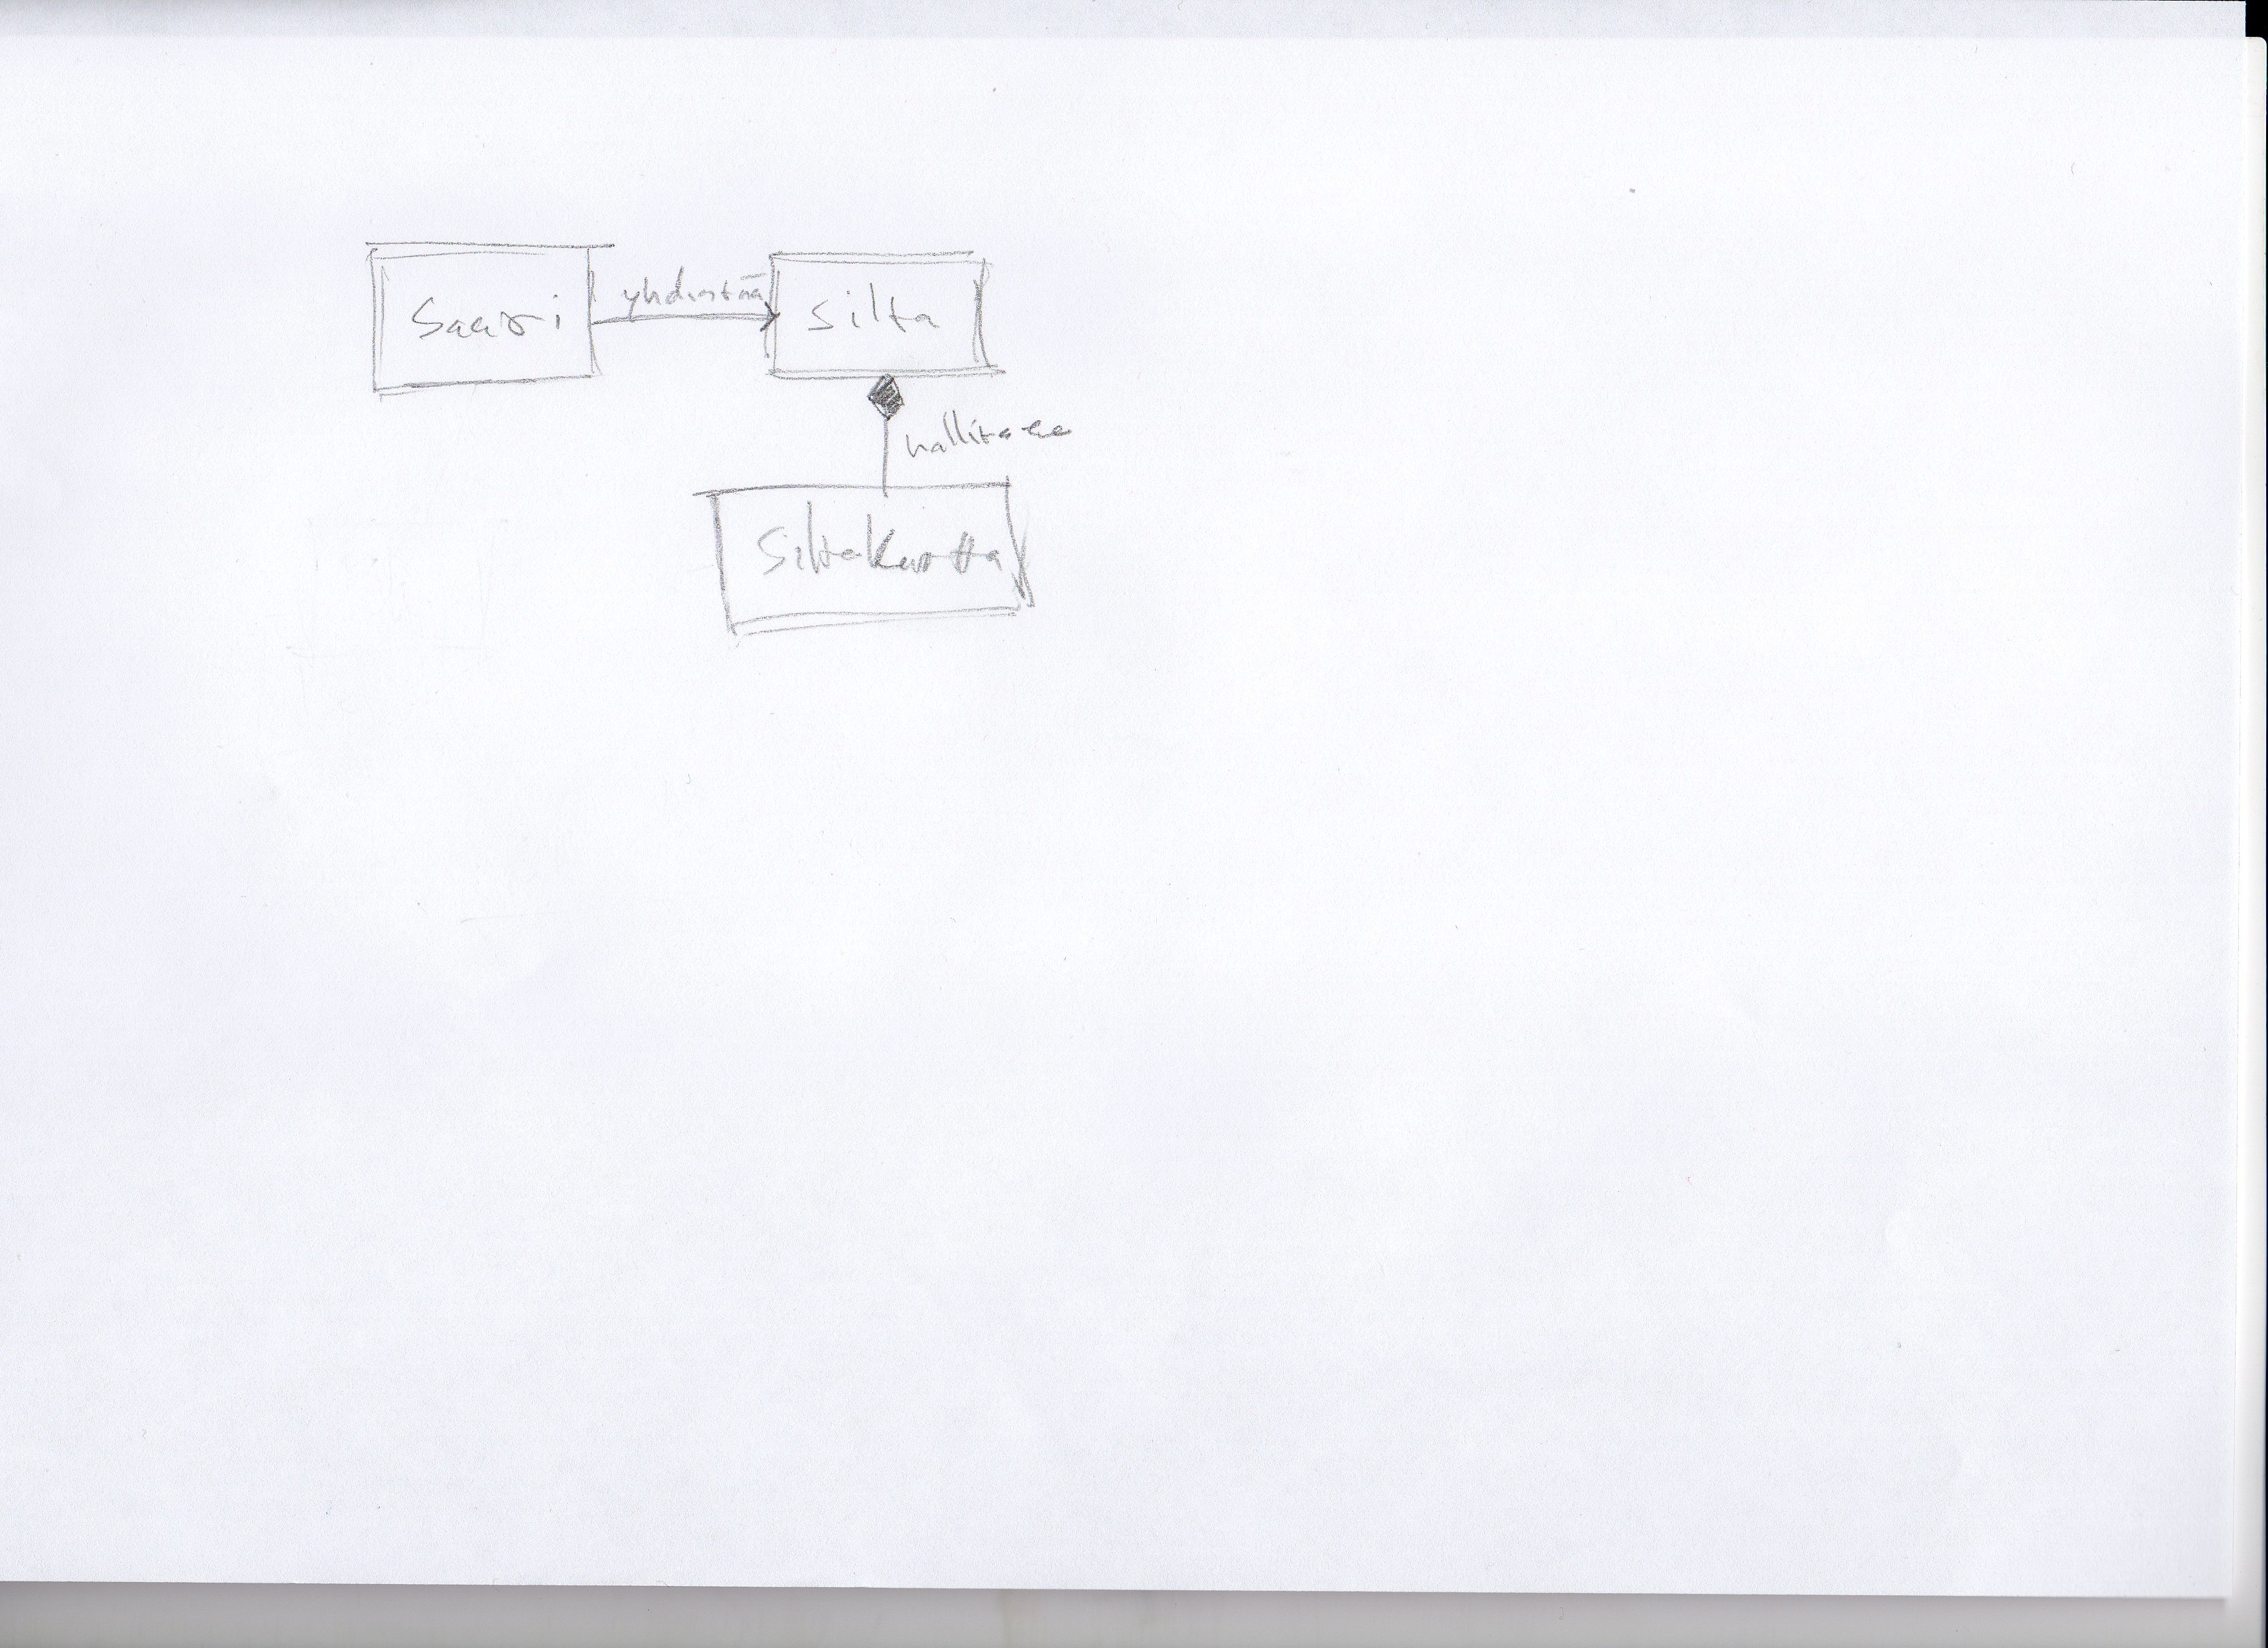 Saari
yhdistää
Silta
hallitsee
SiltaKartta